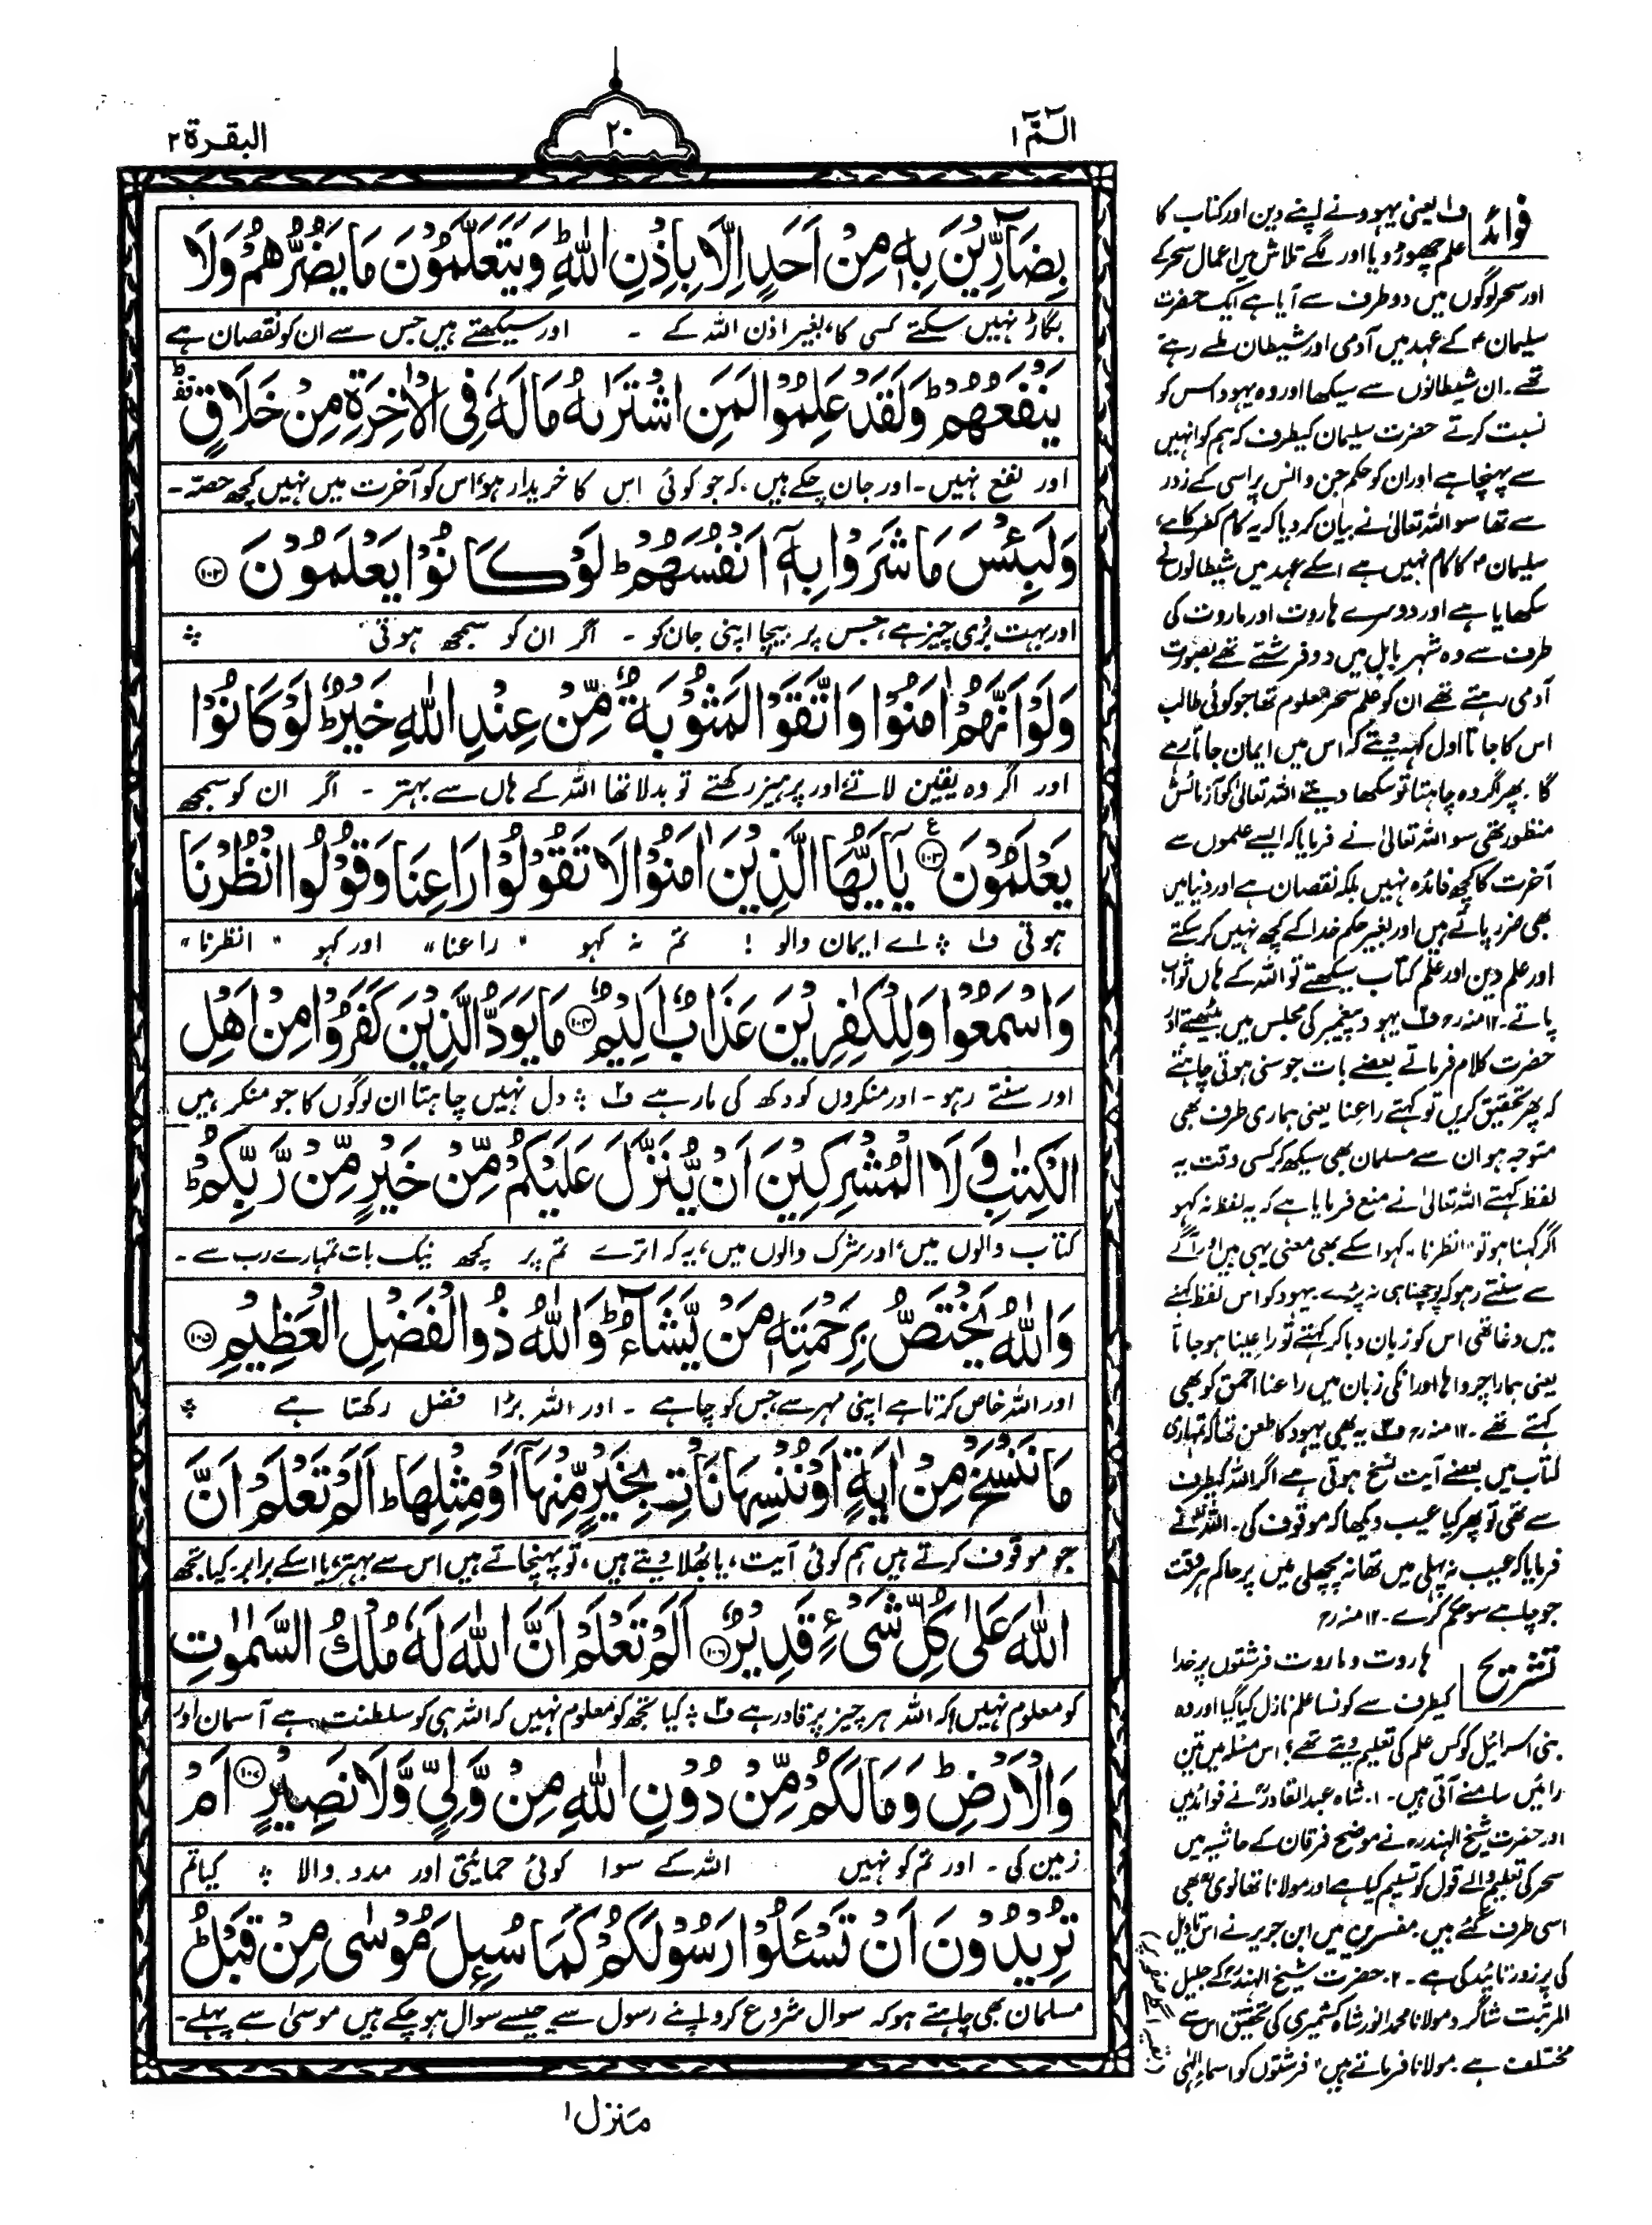 الٓمّٓ ۱
۲۰
البقرة ۲
بِضَآرِّیْنَ بِهٖ مِنْ اَحَدٍ اِلَّا بِاِذْنِ اللّٰهِؕ وَیَتَعَلَّمُوْنَ مَا یَضُرُّهُمْ وَلَا
بگاڑ نہیں سکتے کسی کا، بغیر اذن اللہ کے ۔ اور سیکھتے ہیں جس سے ان کو نقصان ہے
یَنْفَعُهُمْؕ وَلَقَدْ عَلِمُوْا لَمَنِ اشْتَرٰىهُ مَا لَهٗ فِی الْاٰخِرَةِ مِنْ خَلَاقٍ ؕ۫
اور نفع نہیں ۔ اور جان چکے ہیں، کہ جو کوئی اس کا خریدار ہو، اس کو آخرت میں نہیں کچھ حصّہ ۔
وَلَبِئْسَ مَا شَرَوْا بِهٖۤ اَنْفُسَهُمْؕ لَوْ كَانُوْا یَعْلَمُوْنَ ﴿۱۰۲﴾
اور بہت بُری چیز ہے، جس پر بیچا اپنی جان کو ۔ اگر ان کو سمجھ ہوتی ؞
وَلَوْ اَنَّهُمْ اٰمَنُوْا وَاتَّقَوْا لَمَثُوْبَةٌ مِّنْ عِنْدِ اللّٰهِ خَیْرٌؕ لَوْ كَانُوْا
اور اگر وہ یقین لاتے اور پرہیز رکھتے تو بدلا تھا اللہ کے ہاں سے بہتر ۔ اگر ان کو سمجھ
یَعْلَمُوْنَ ﴿۱۰۳﴾ ع یٰۤاَیُّهَا الَّذِیْنَ اٰمَنُوْا لَا تَقُوْلُوْا رَاعِنَا وَقُوْلُوا انْظُرْنَا
ہوتی ف۱ ؞ اے ایمان والو ! تم نہ کہو "راعنا" اور کہو "انظرنا"
وَاسْمَعُوْاؕ وَلِلْكٰفِرِیْنَ عَذَابٌ اَلِیْمٌ ﴿۱۰۴﴾ مَا یَوَدُّ الَّذِیْنَ كَفَرُوْا مِنْ اَهْلِ
اور سنتے رہو ۔ اور منکروں کو دکھ کی مار ہے ف۲ ؞ دل نہیں چاہتا ان لوگوں کا جو منکر ہیں
الْكِتٰبِ وَلَا الْمُشْرِكِیْنَ اَنْ یُّنَزَّلَ عَلَیْكُمْ مِّنْ خَیْرٍ مِّنْ رَّبِّكُمْؕ
کتاب والوں میں، اور شرک والوں میں، یہ کہ اترے تم پر کچھ نیک بات تمہارے رب سے ۔
وَاللّٰهُ یَخْتَصُّ بِرَحْمَتِهٖ مَنْ یَّشَآءُؕ وَاللّٰهُ ذُو الْفَضْلِ الْعَظِیْمِ ﴿۱۰۵﴾
اور اللہ خاص کرتا ہے اپنی مہر سے، جس کو چاہے ۔ اور اللہ بڑا فضل رکھتا ہے ؞
مَا نَنْسَخْ مِنْ اٰیَةٍ اَوْ نُنْسِهَا نَاْتِ بِخَیْرٍ مِّنْهَاۤ اَوْ مِثْلِهَاؕ اَلَمْ تَعْلَمْ اَنَّ
جو موقوف کرتے ہیں ہم کوئی آیت، یا بھلا دیتے ہیں، تو پہنچاتے ہیں اس سے بہتر، یا اسکے برابر ۔ کیا تجھ
اللّٰهَ عَلٰى كُلِّ شَیْءٍ قَدِیْرٌ ﴿۱۰۶﴾ اَلَمْ تَعْلَمْ اَنَّ اللّٰهَ لَهٗ مُلْكُ السَّمٰوٰتِ
کو معلوم نہیں، کہ اللہ ہر چیز پر قادر ہے ف۳ ؞ کیا تجھ کو معلوم نہیں کہ اللہ ہی کو سلطنت ہے آسمان اور
وَالْاَرْضِؕ وَمَا لَكُمْ مِّنْ دُوْنِ اللّٰهِ مِنْ وَّلِیٍّ وَّلَا نَصِیْرٍ ﴿۱۰۷﴾ اَمْ
زمین کی ۔ اور تم کو نہیں اللہ کے سوا کوئی حمایتی اور مدد والا ؞ کیا تم
تُرِیْدُوْنَ اَنْ تَسْـَٔلُوْا رَسُوْلَكُمْ كَمَا سُىِٕلَ مُوْسٰى مِنْ قَبْلُؕ
مسلمان بھی چاہتے ہو کہ سوال شروع کرو اپنے رسول سے، جیسے سوال ہو چکے ہیں موسیٰ سے پہلے ۔
منزل ۱
فوائد
ف۱ یعنی یہود نے اپنے دین اور کتاب کا
علم چھوڑ دیا اور لگے تلاش میں اعمال سحر کے
اور سحر لوگوں میں دو طرف سے آیا ہے ایک حضرت
سلیمان ؑ کے عہد میں آدمی اور شیطان ملے رہتے
تھے ۔ ان شیطانوں سے سیکھا اور وہ یہود اس کو
نسبت کرتے حضرت سلیمان کیطرف کہ ہم کو انہیں
سے پہنچا ہے اور ان کو حکم جن و انس پر اسی کے زور
سے تھا سو اللہ تعالیٰ نے بیان کر دیا کہ یہ کام کفر کا ہے،
سلیمان ؑ کا کام نہیں ہے اسکے عہد میں شیطانوں نے
سکھایا ہے اور دوسرے ہاروت اور ماروت کی
طرف سے وہ شہر بابل میں دو فرشتے تھے بصورت
آدمی رہتے تھے ان کو علم سحر معلوم تھا جو کوئی طالب
اس کا جاتا اول کہہ دیتے کہ اس میں ایمان جاتا رہے
گا ۔ پھر اگر وہ چاہتا تو سکھا دیتے اللہ تعالیٰ کو آزمائش
منظور تھی سو اللہ تعالیٰ نے فرمایا کہ ایسے علموں سے
آخرت کا کچھ فائدہ نہیں بلکہ نقصان ہے اور دنیا میں
بھی ضرر پاتے ہیں اور بغیر حکم خدا کے کچھ نہیں کر سکتے
اور علم دین اور علم کتاب سیکھتے تو اللہ کے ہاں ثواب
پاتے ۔ ۱۲ منہ رح ف۲ یہود پیغمبر کی مجلس میں بیٹھتے اور
حضرت کلام فرماتے بعضے بات جو سنی ہوتی چاہتے
کہ پھر تحقیق کریں تو کہتے راعنا یعنی ہماری طرف بھی
متوجہ ہو ان سے مسلمان بھی سیکھ کر کسی وقت یہ
لفظ کہتے اللہ تعالیٰ نے منع فرمایا ہے کہ یہ لفظ نہ کہو
اگر کہنا ہو تو "انظرنا" کہو اسکے بھی معنی یہی ہیں اور آگے
سے سنتے رہو کہ پوچھنا ہی نہ پڑے یہود کو اس لفظ کہنے
میں دغا تھی اس کو زبان دبا کر کہتے تو راعینا ہو جاتا
یعنی ہمارا چرواہا اور انکی زبان میں راعنا احمق کو بھی
کہتے تھے ۔ ۱۲ منہ رح ف۳ یہ بھی یہود کا طعن تھا کہ تمہاری
کتاب میں بعضے آیت نسخ ہوتی ہے اگر اللہ کیطرف
سے تھی تو پھر کیا عیب دیکھا کہ موقوف کی ۔ اللہ نے
فرمایا کہ عیب نہ پہلی میں تھا نہ پچھلی میں پر حاکم ہر وقت
جو چاہے سو حکم کرے ۔ ۱۲ منہ رح
تشریح
ہاروت و ماروت فرشتوں پر خدا
کیطرف سے کونسا علم نازل کیا گیا اور وہ
بنی اسرائیل کو کس علم کی تعلیم دیتے تھے؟ اس مسئلہ میں تین
رائیں سامنے آتی ہیں ۔ ۱ ۔ شاہ عبدالقادر ؒ نے فوائد میں
اور حضرت شیخ الہند رح نے موضح فرقان کے حاشیہ میں
سحر کی تعلیم والے قول کو تسلیم کیا ہے اور مولانا تھانوی ؒ بھی
اسی طرف گئے ہیں ۔ مفسرین میں ابن جریر نے اس تاویل
کی پرزور تائید کی ہے ۔ ۲ ۔ حضرت شیخ الہند ؒ کے جلیل
المرتبت شاگرد مولانا محمد انور شاہ کشمیری کی تحقیق اس سے
مختلف ہے ۔ مولانا فرماتے ہیں "فرشتوں کو اسماء الٰہی
(بقیہ اگلے صفحہ پر)